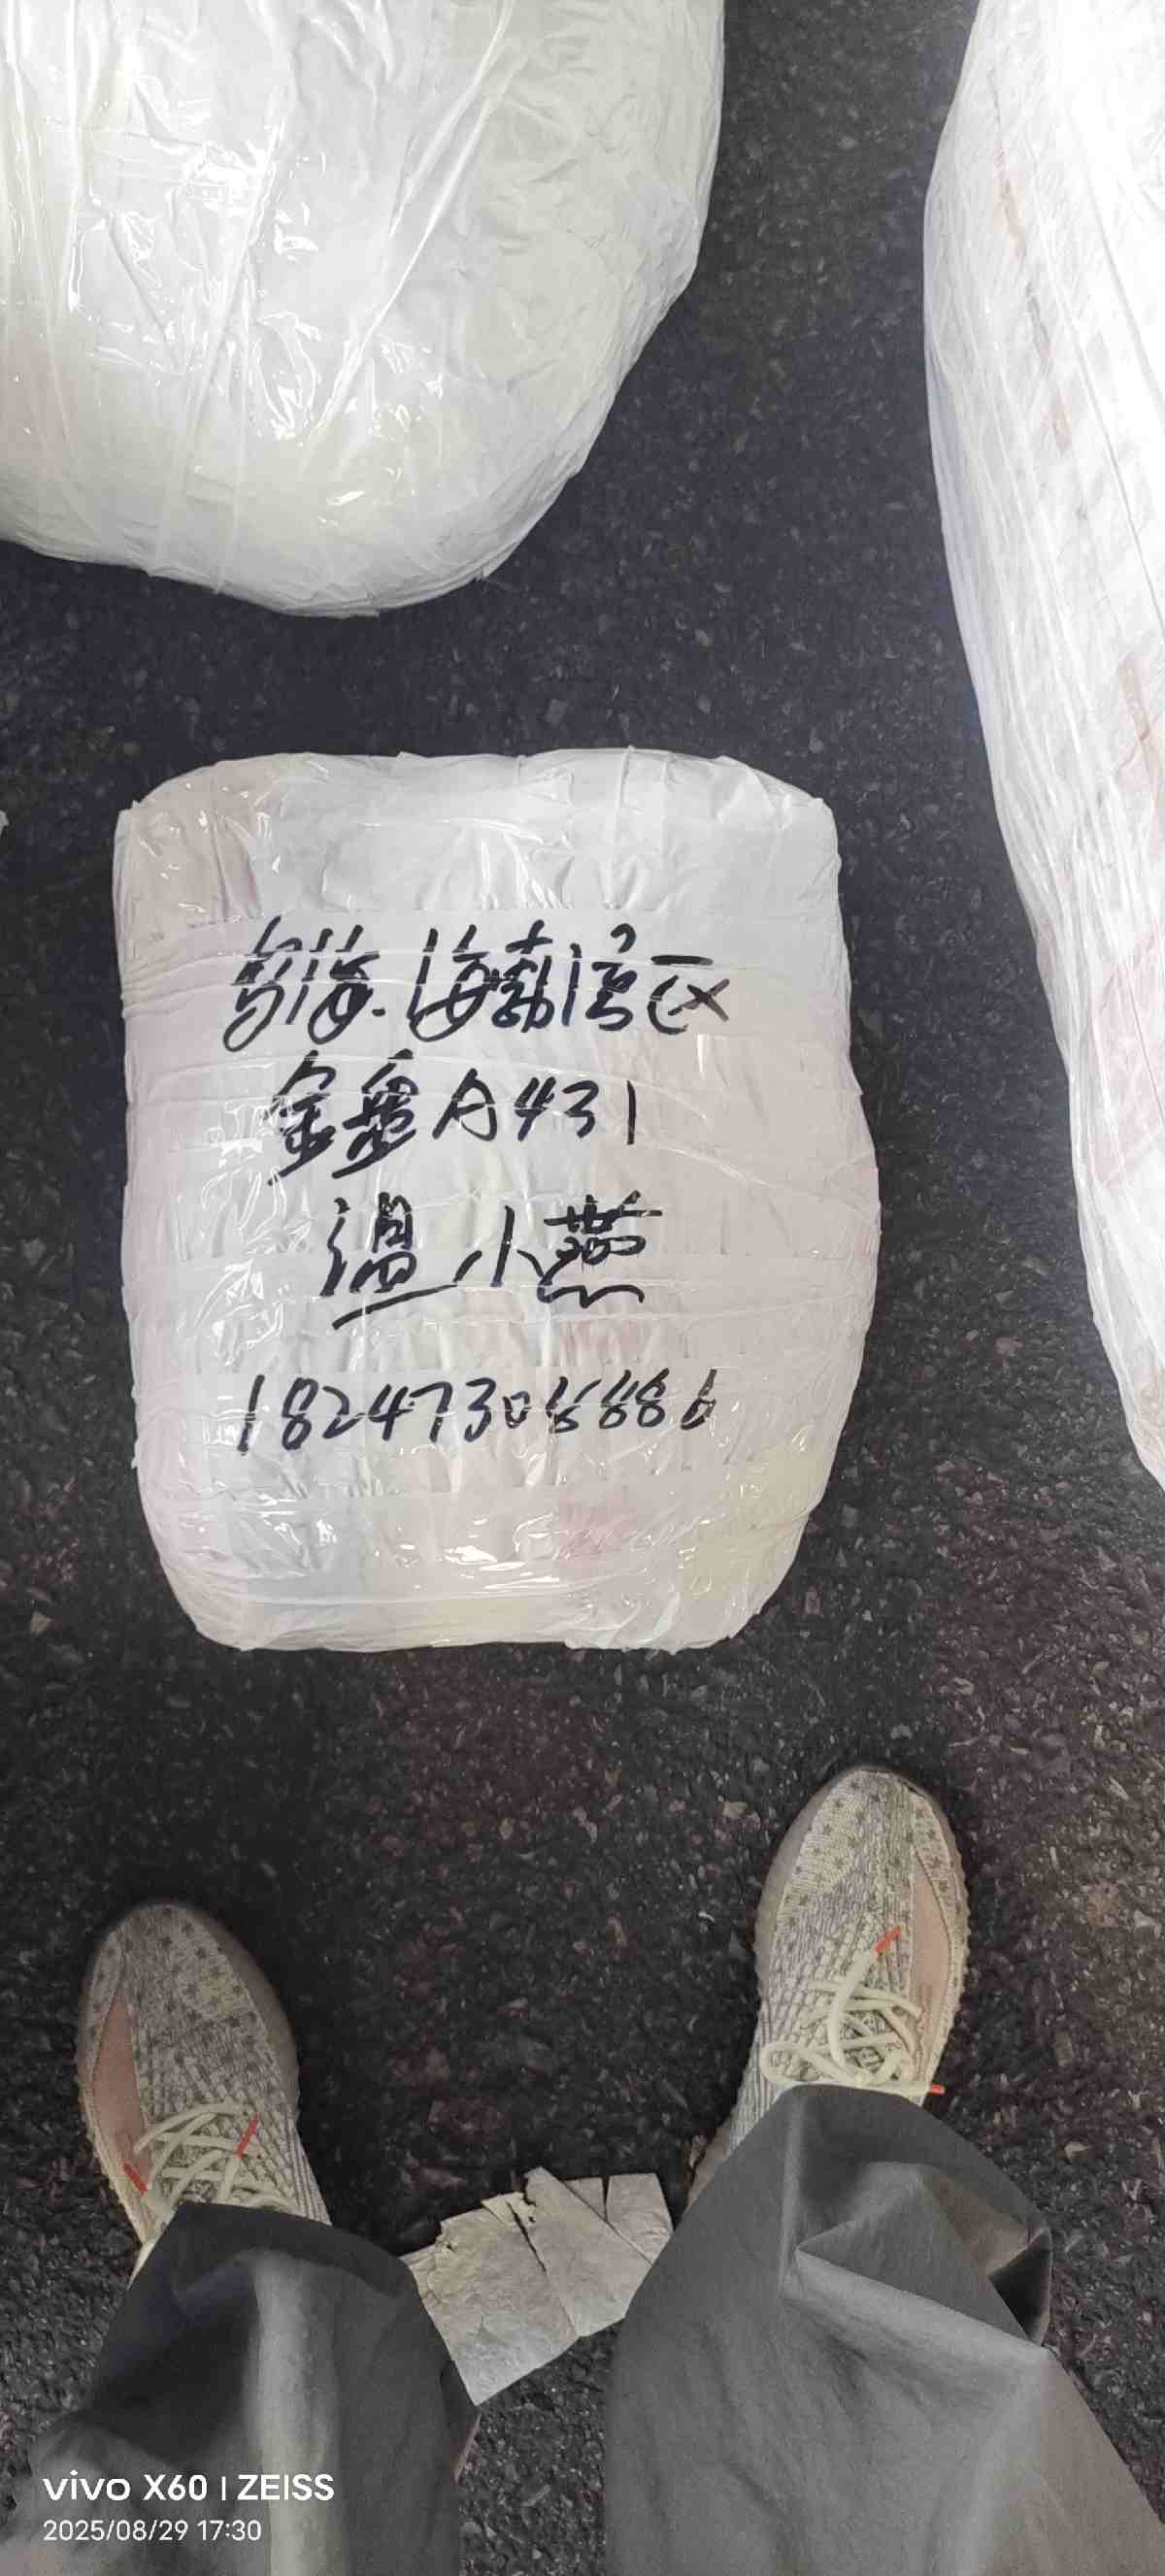 乌海.海勃湾区
金盘A431
温小燕
18247308886
vivo X60 | ZEISS
2025/08/29 17:30